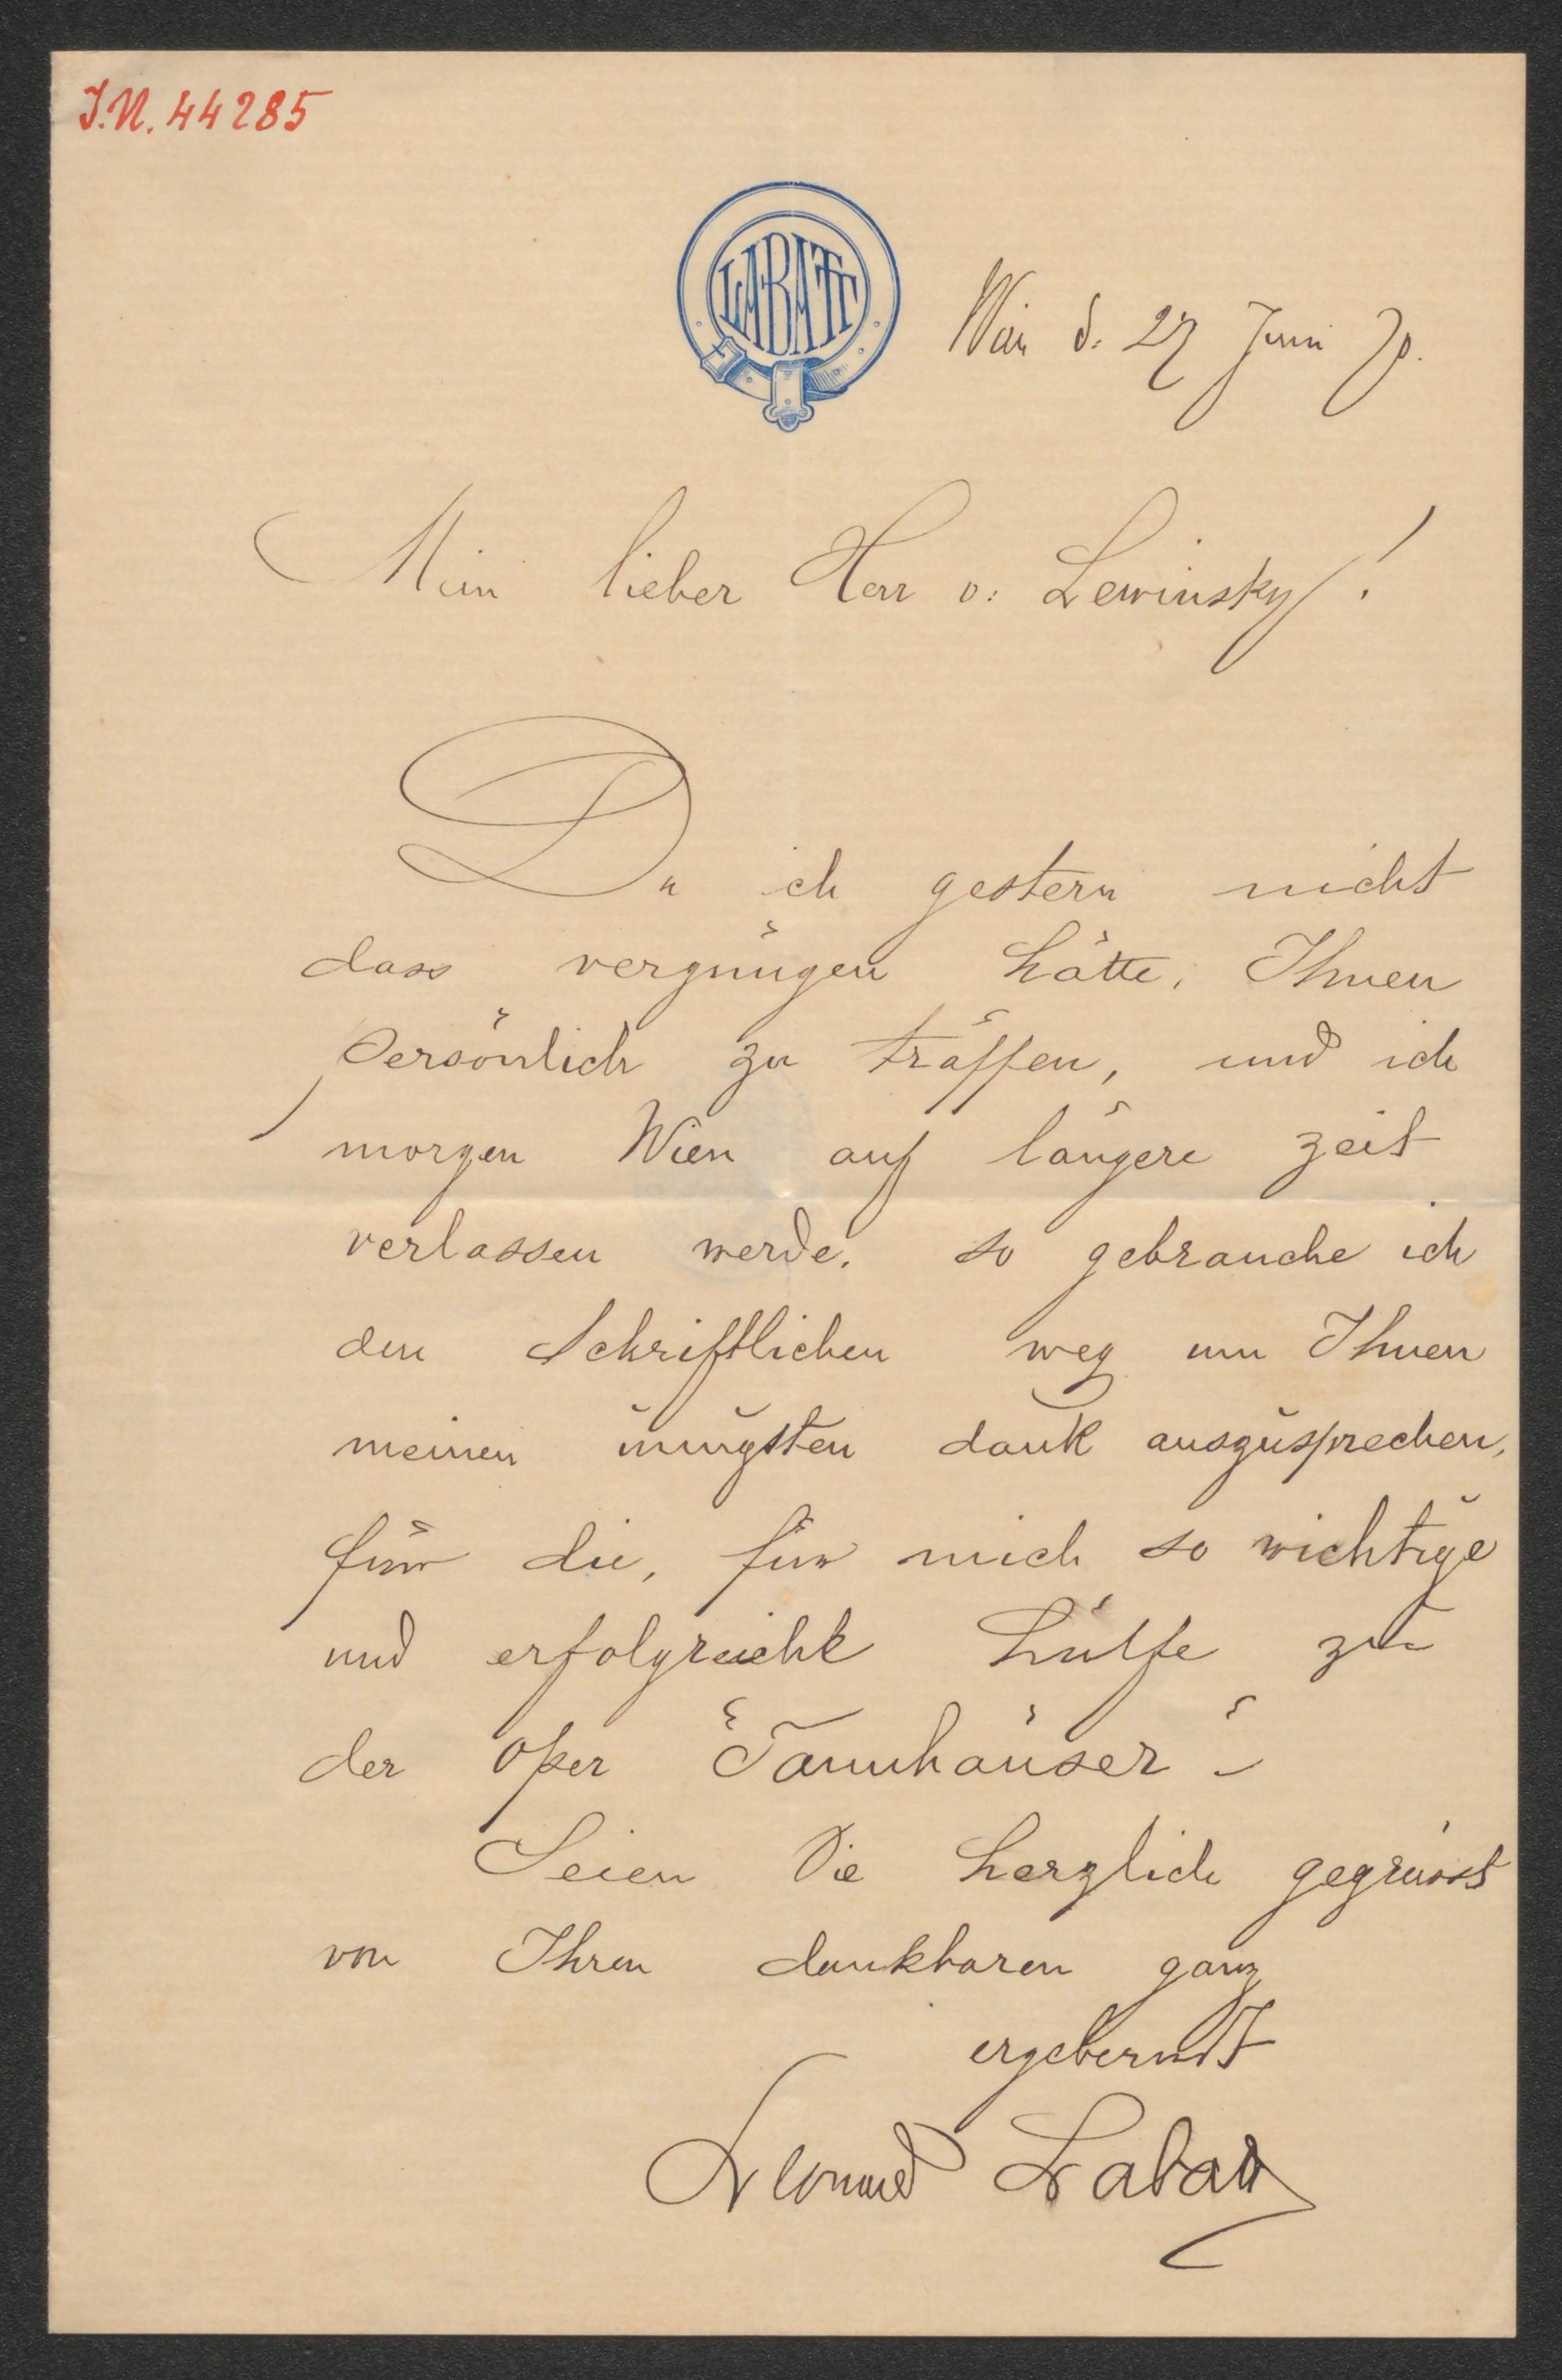 I.N. 44285
LABATT
Wien d. 27 Juni 70.
Mein lieber Herr v: Lewinsky!
Da ich gestern nicht
dass vergnügen hätte, Ihnen
persönlich zu träffen, und ich
morgen Wien auf längere zeit
verlassen werde. so gebrauche ich
den Schriftlichen weg um Ihnen
meinen innigsten dank auszusprechen,
für die, für mich so wichtige
und erfolgreiche hülfe zu
der Oper "Tannhäuser"
Seien Sie herzlich gegrüsst
von Ihren dankbaren ganz
ergebernst
Leonard Labatt